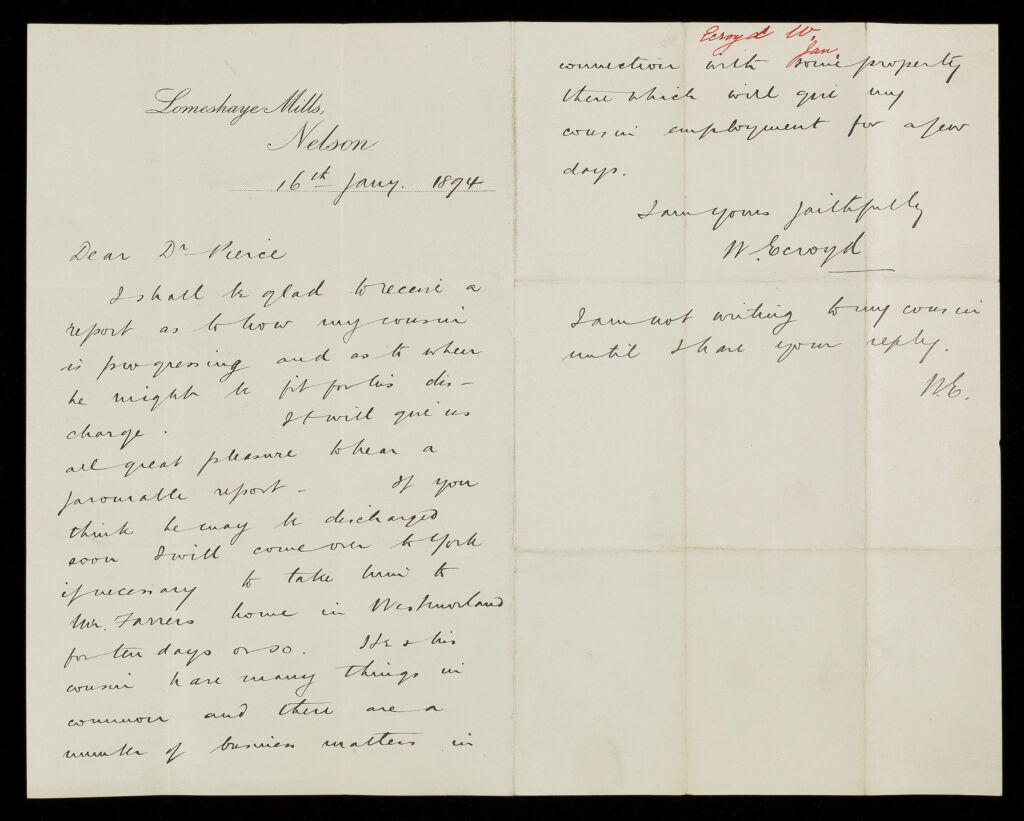 Lomeshaye Mills,
Nelson
16th Jany. 1894
Dear Dr Pierce
I shall be glad to receive a
report as to how my cousin
is progressing and as to when
he might be fit for his dis-
charge. It will give us
all great pleasure to hear a
favourable report - If you
think he may be discharged
soon I will come over to York
if necessary to take him to
Mr. Farrers home in Westmorland
for ten days or so. He & his
cousin have many things in
common and there are a
number of business matters in
Ecroyd W.
Jan.
connection with some property
there which will give my
cousin employment for a few
days.
I am yours faithfully
W. Ecroyd
I am not writing to my cousin
until I have your reply.
W.E.